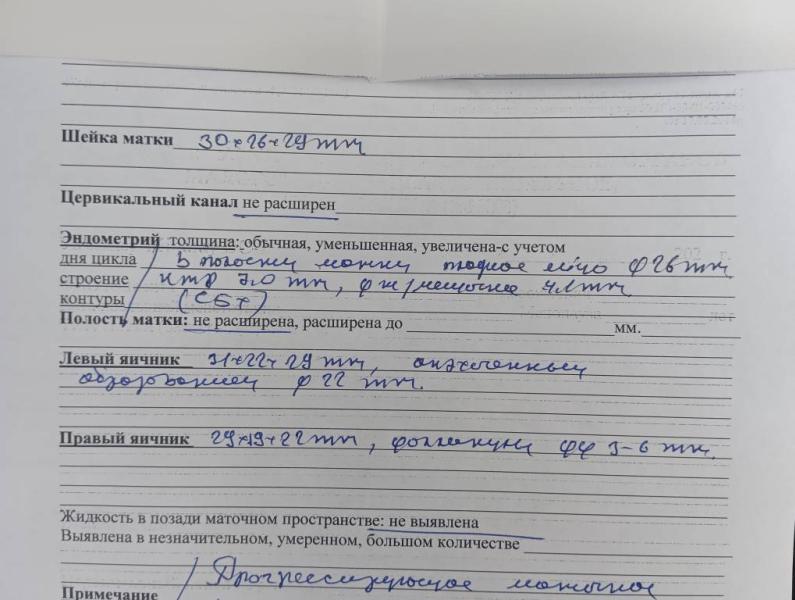 Шейка матки 30×26×29 mm
Цервикальный канал не расширен
Эндометрий толщина: обычная, уменьшенная, увеличена-с учетом
дня цикла В полости матки плодное яйцо φ 26 mm
строение КТР 7.0 mm, φ ж/мешочка 4.1 mm
контуры (СБ+)
Полость матки: не расширена, расширена до мм.
Левый яичник 31×22×29 mm, анэхогенным
образованием φ 22 mm.
Правый яичник 29×19×22 mm, фолликулы φφ 3-6 mm.
Жидкость в позади маточном пространстве: не выявлена
Выявлена в незначительном, умеренном, большом количестве
Примечание Прогрессирующая маточная